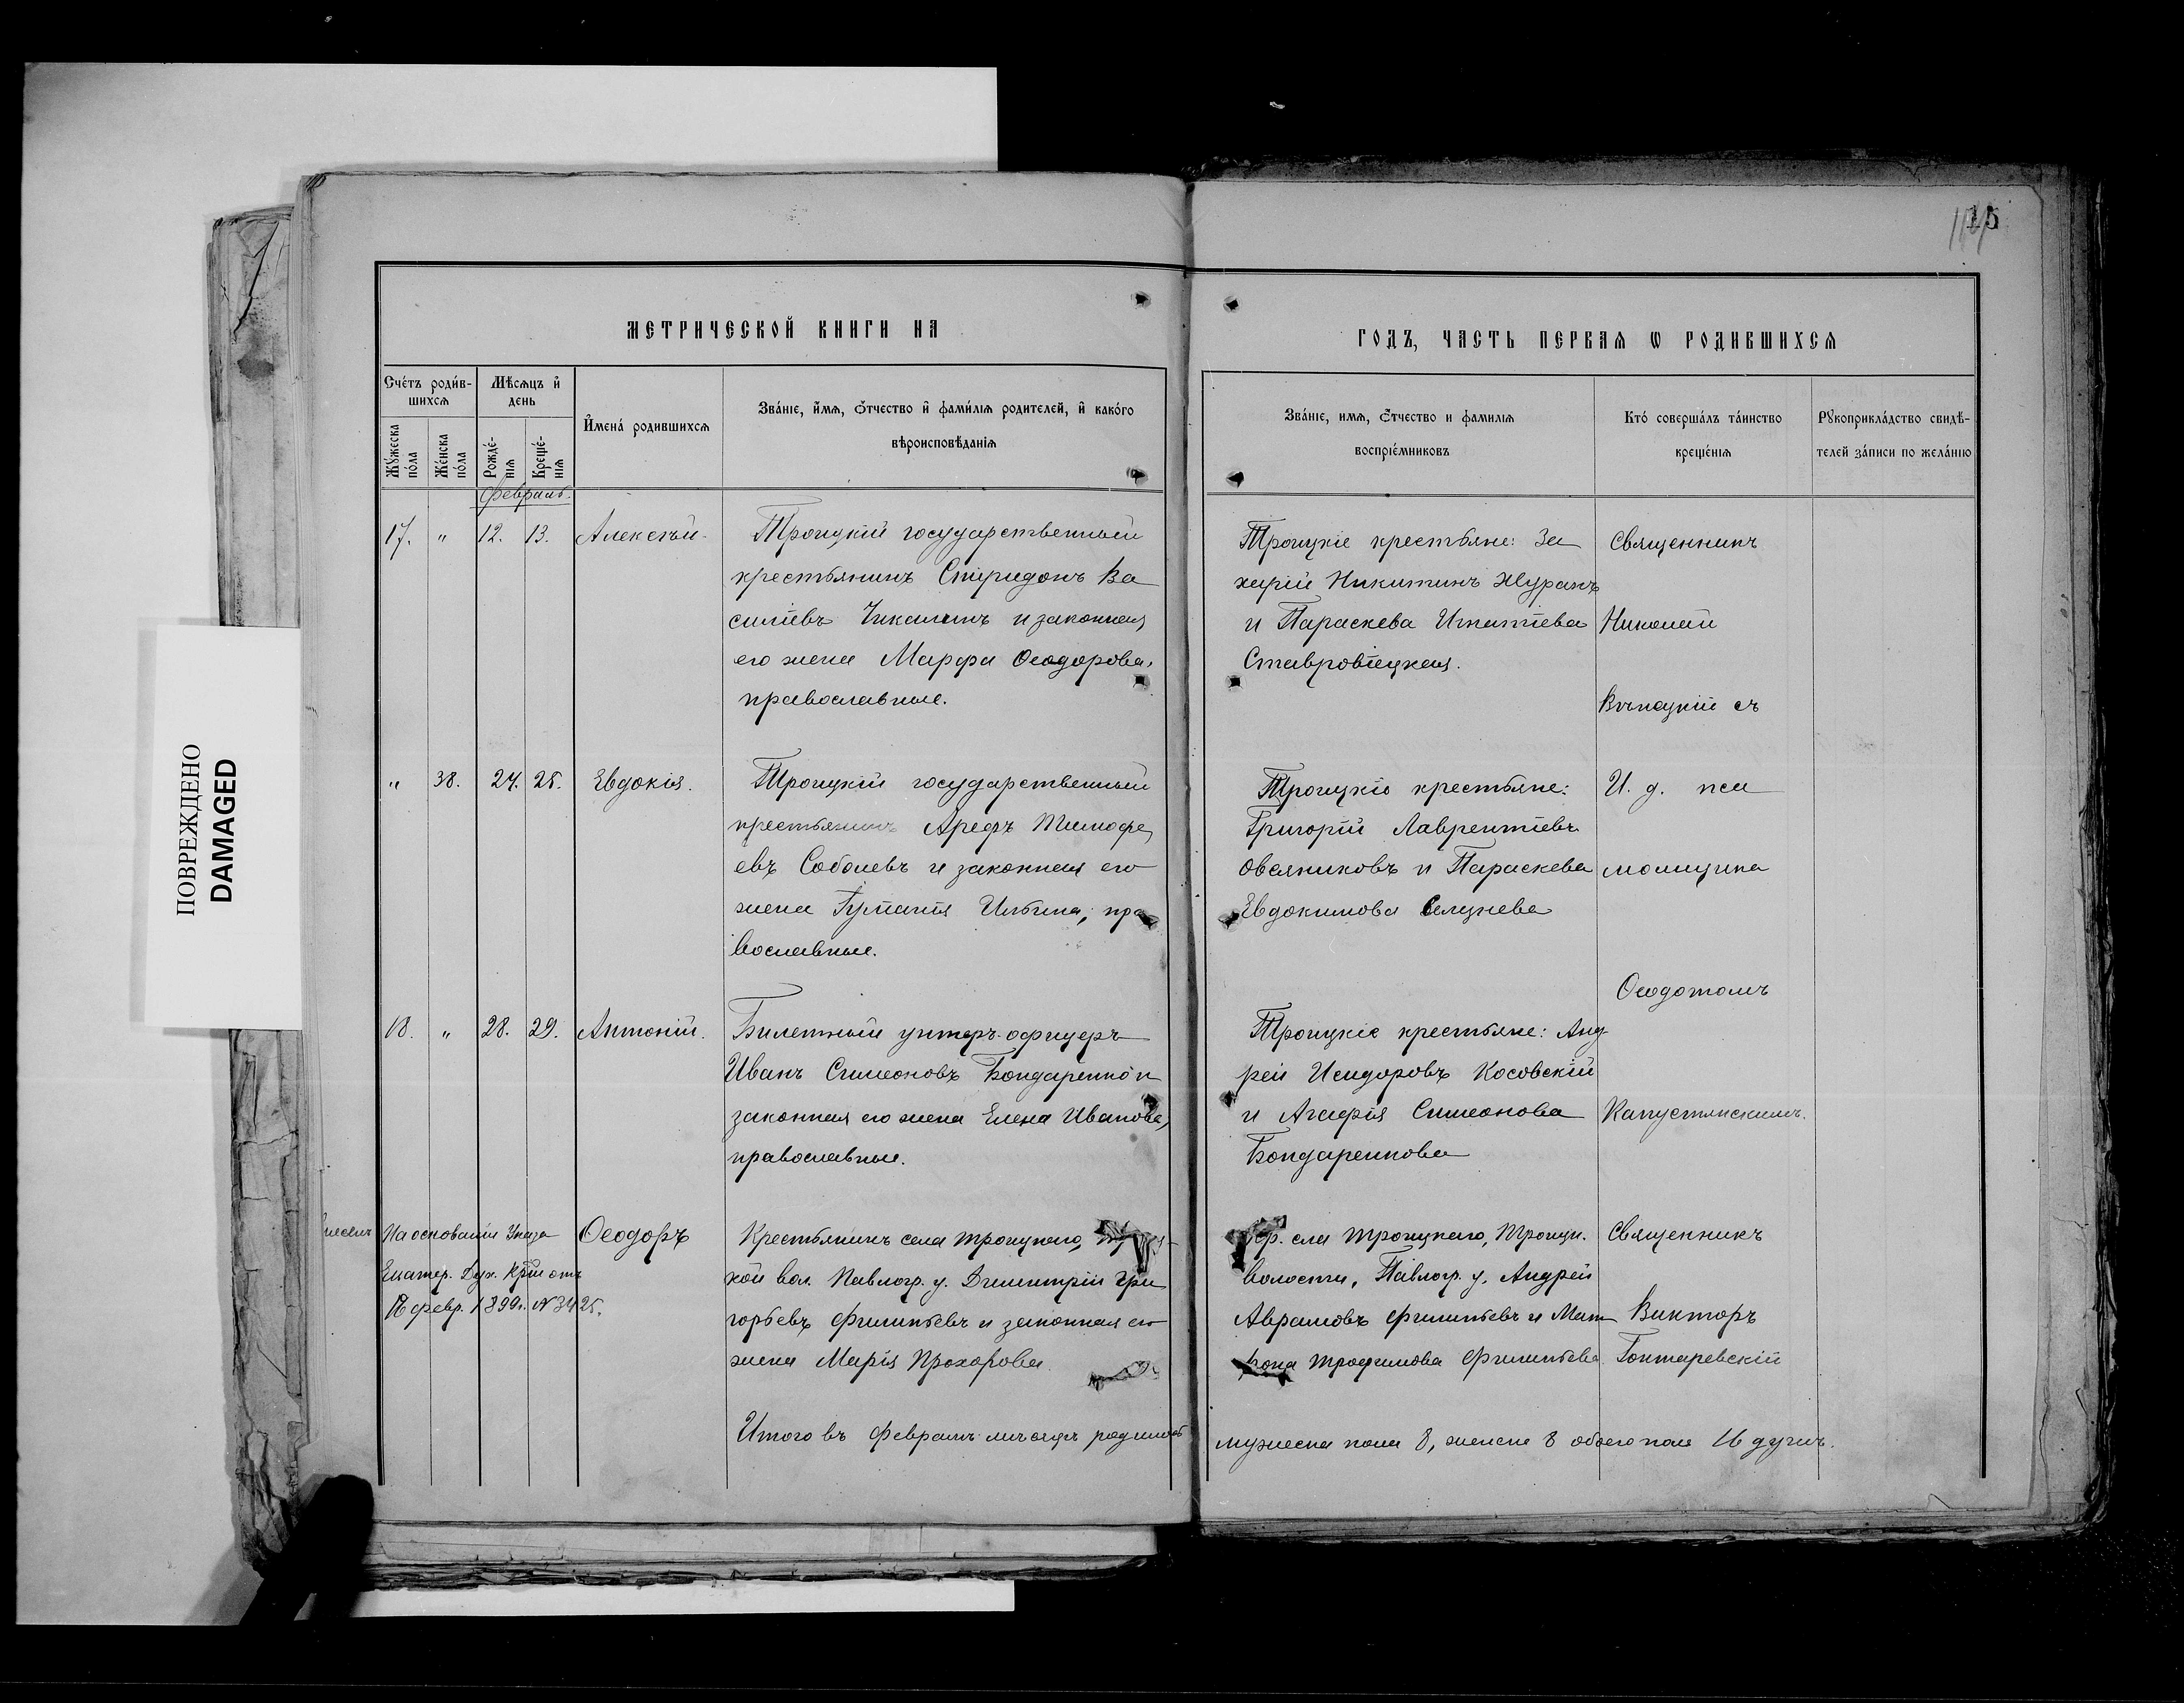 115
ПОВРЕЖДЕНО
DAMAGED
МЕТРИЧЕСКОЙ КНИГИ НА
ГОДЪ, ЧАСТЬ ПЕРВАѦ Ѡ РОДИВШИХСѦ
Счетъ родив-
шихсѧ
Мѣсѧцъ и
день
Мужеска
пола
Женска
пола
Рожде-
нїѧ
Креще-
нїѧ
Имена родившихсѧ
Званїе, имѧ, отчество и фамилїѧ родителей, и какого
вѣроисповѣданїѧ
Званїе, имѧ, отчество и фамилїѧ
воспрїемниковъ
Кто совершалъ таинство
крещенїѧ
Рукоприкладство свидѣ-
телей записи по желанїю
Февраль.
17. " 12. 13. Алексѣй.
Троицкій государственный
крестьянинъ Спиридонъ Ва
силіевъ Чикалинъ и законная
его жена Марфа Ѳеодорова,
православные.
Троицкіе крестьяне: За
харій Никитинъ Журавъ
и Параскева Игнатіева
Ставровіецкая.
Священникъ
Николай
Вѣнецкій съ
" 38. 24. 25. Евдокія.
Троицкій государственный
крестьянинъ Арефъ Тимофе
евъ Соболевъ и законная его
жена Гултанія Ильина, пра
вославные.
Троицкіе крестьяне:
Григорій Лаврентіевъ
Овсяниковъ и Параскева
Евдокимова Селезнева
И. д. пса
ломщика
Ѳеодотомъ
18. " 28. 29. Антоній.
Билетный унтеръ-офицеръ
Иванъ Симеоновъ Бондаренко и
законная его жена Елена Иванова,
православные.
Троицкіе крестьяне: Анд
рей Исидоровъ Косовскій
и Агафія Симеонова
Бондаренкова
Капустянскимъ.
На основаніи Указа
Екатер. Дух. Кріи отъ
18 февр. 1899г. № 3425.
Ѳеодоръ
Крестьянинъ села Троицкаго,
кой вол. Павлогр. у. Димитрій Гри
горьевъ Филипьевъ и законная его
жена Марія Прохорова.
Кр. села Троицкаго, Троицк.
волости, Павлогр. у. Андрей
Аврамовъ Филипьевъ и Мат
рона Трофимова Филипьева.
Священникъ
Викторъ
Гонтаревскій
Итого въ Февралѣ мѣсяцѣ родилось
мужеска пола 8, женска 8 обоего пола 16 душъ.